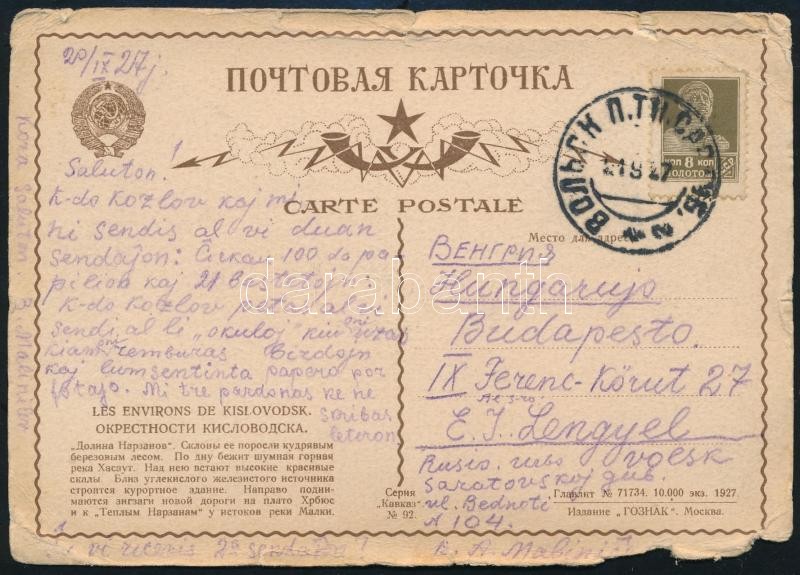 20/IX 27j.
ПОЧТОВАЯ КАРТОЧКА
CARTE POSTALE
ВОЛЬСК П.ТП. САР
21 9 27
8 КОП
ЗОЛОТОМ
Saluton!
K-do Kozlov kaj mi
ni sendis al vi duan
sendaĵon: Ĉirkaŭ 100 da pa
pilioj kaj 21 bestetojn.
K-do Kozlov petas al vi
sendi al li „okuloj" kiujn
kiam remburas Birdojn
kaj lumsentinta papero por
fotaĵo. Mi tre pardonas ke ne
skribas
leteron
Kora saluton B. Mabinitov
vi ricevis 2a sendaĵo!
Место для адреса
ВЕНГРИЯ
Hungarujo
Budapesto.
IX Ferenc-Körut 27
E. J. Lengyel
Rusio. urbo voesk
Saratovskoj gub.
ul. Bednoti
104.
K. A. Mabini
LES ENVIRONS DE KISLOVODSK.
ОКРЕСТНОСТИ КИСЛОВОДСКА.
„Долина Нарзанов". Склоны ее поросли кудрявым
березовым лесом. По дну бежит шумная горная
река Хасаут. Над нею встают высокие красивые
скалы. Близ углекислого железистого источника
строится курортное здание. Направо подни-
маются зигзаги новой дороги на плато Хрбюс
и к „Теплым Нарзанам" у истоков реки Малки.
Серия
„Кавказ"
№ 92.
Главлит № 71734. 10.000 экз. 1927.
Издание „ГОЗНАК". Москва.
darabanth